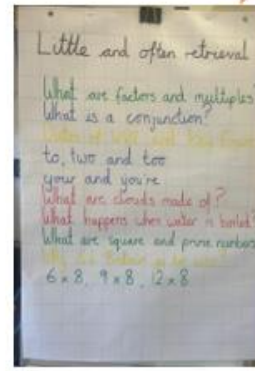 Little and often retrieval
What are factors and multiples?
What is a conjunction?
Dates of WW1 and key
to, two and too
your and you're
What are clouds made of?
What happens when water is boiled?
What are square and prime numbers
Why did
6 x 8, 9 x 8, 12 x 8